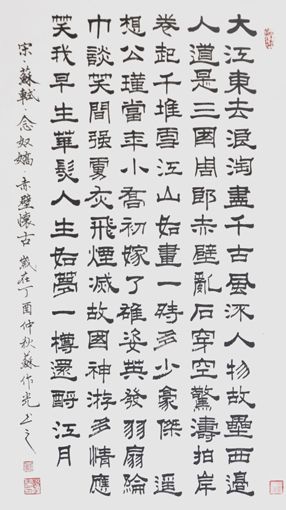 大江東去浪淘盡千古風流人物故壘西邊
人道是三國周郎赤壁亂石穿空驚濤拍岸
卷起千堆雪江山如畫一時多少豪傑 遥
想公瑾當年小喬初嫁了雄姿英發羽扇綸
巾談笑間强虜灰飛煙滅故國神游多情應
笑我早生華髮人生如夢一樽還酹江月
宋·蘇軾·念奴嬌·赤壁懷古 歲在丁酉仲秋蘇作光书之